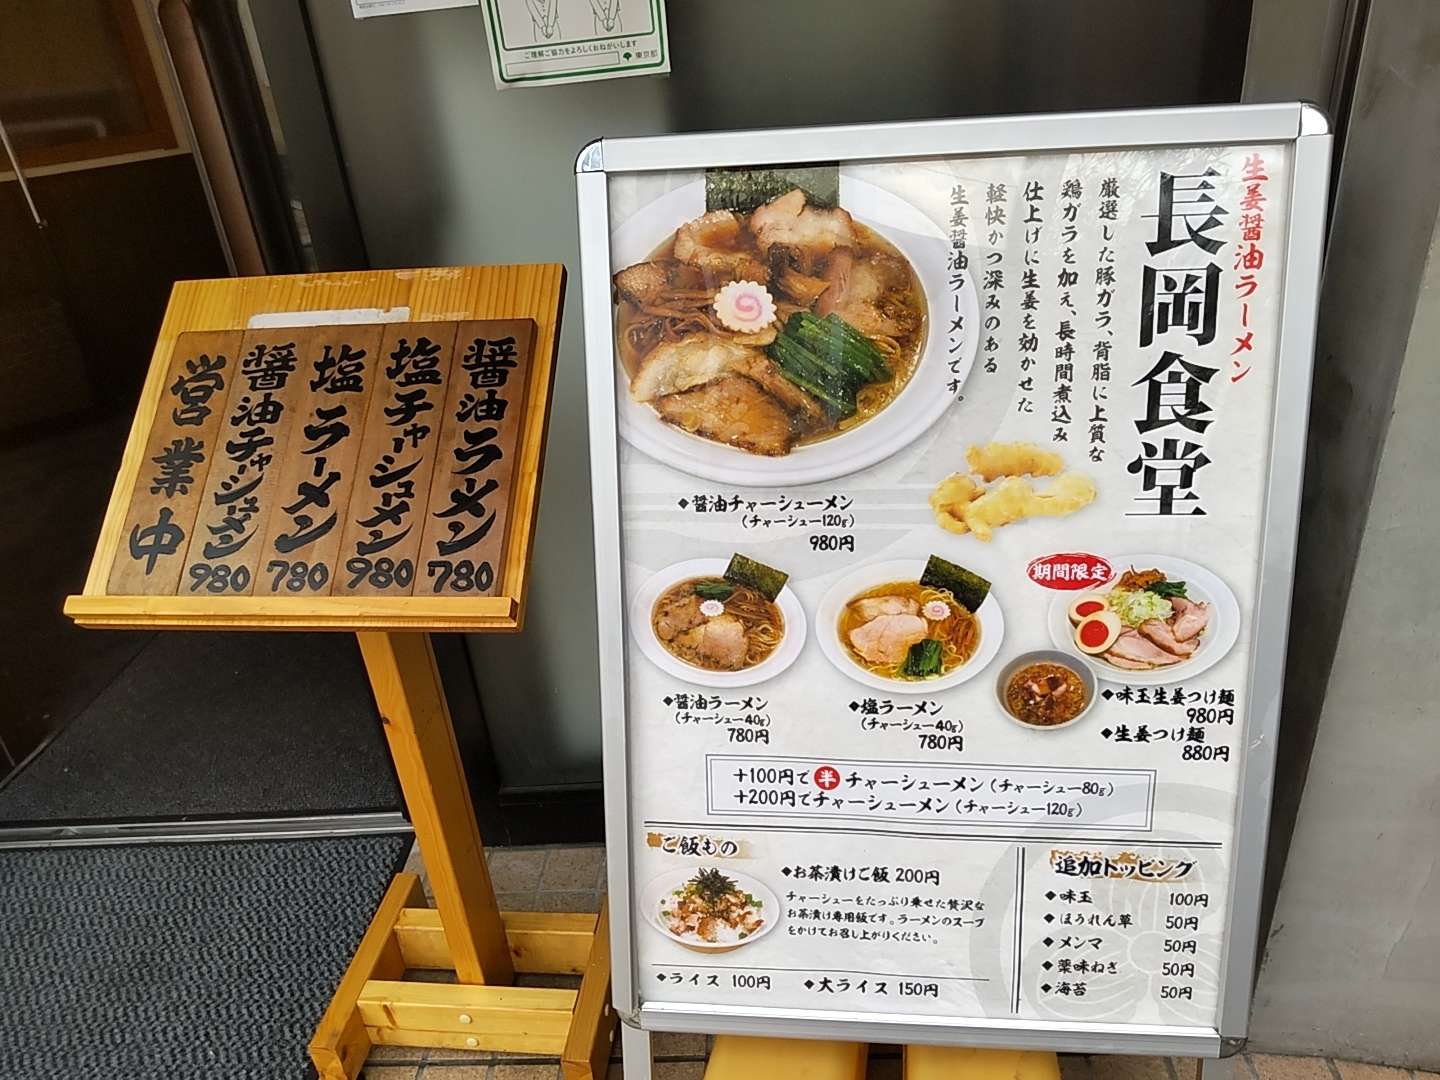 ご理解ご協力をよろしくおねがいします
東京都
醤油ラーメン 780
塩チャーシューメン 980
塩ラーメン 780
醤油チャーシューメン 980
営業中
生姜醤油ラーメン
長岡食堂
厳選した豚ガラ、背脂に上質な
鶏ガラを加え、長時間煮込み
仕上げに生姜を効かせた
軽快かつ深みのある
生姜醤油ラーメンです。
◆醤油チャーシューメン
(チャーシュー120g)
980円
◆醤油ラーメン
(チャーシュー40g)
780円
◆塩ラーメン
(チャーシュー40g)
780円
期間限定
◆味玉生姜つけ麺
980円
◆生姜つけ麺
880円
+100円で半チャーシューメン(チャーシュー80g)
+200円でチャーシューメン(チャーシュー120g)
ご飯もの
◆お茶漬けご飯 200円
チャーシューをたっぷり乗せた贅沢な
お茶漬け専用飯です。ラーメンのスープ
をかけてお召し上がりください。
◆ライス 100円 ◆大ライス 150円
追加トッピング
◆味玉 100円
◆ほうれん草 50円
◆メンマ 50円
◆薬味ねぎ 50円
◆海苔 50円